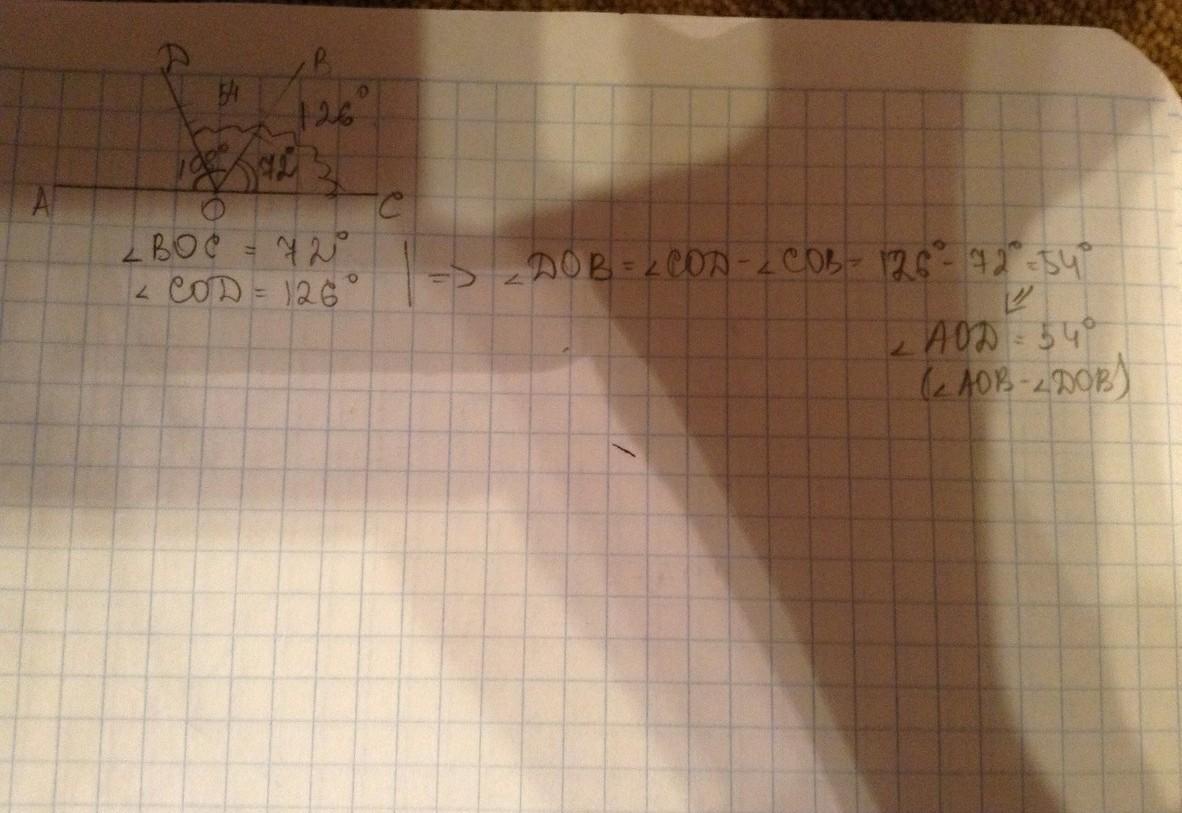 D
B
54
126°
108°
72°
A
O
C
∠BOC = 72°
∠COD = 126°
| => ∠DOB = ∠COD - ∠COB = 126° - 72° = 54°
⇙
∠AOD = 54°
(∠AOB - ∠DOB)